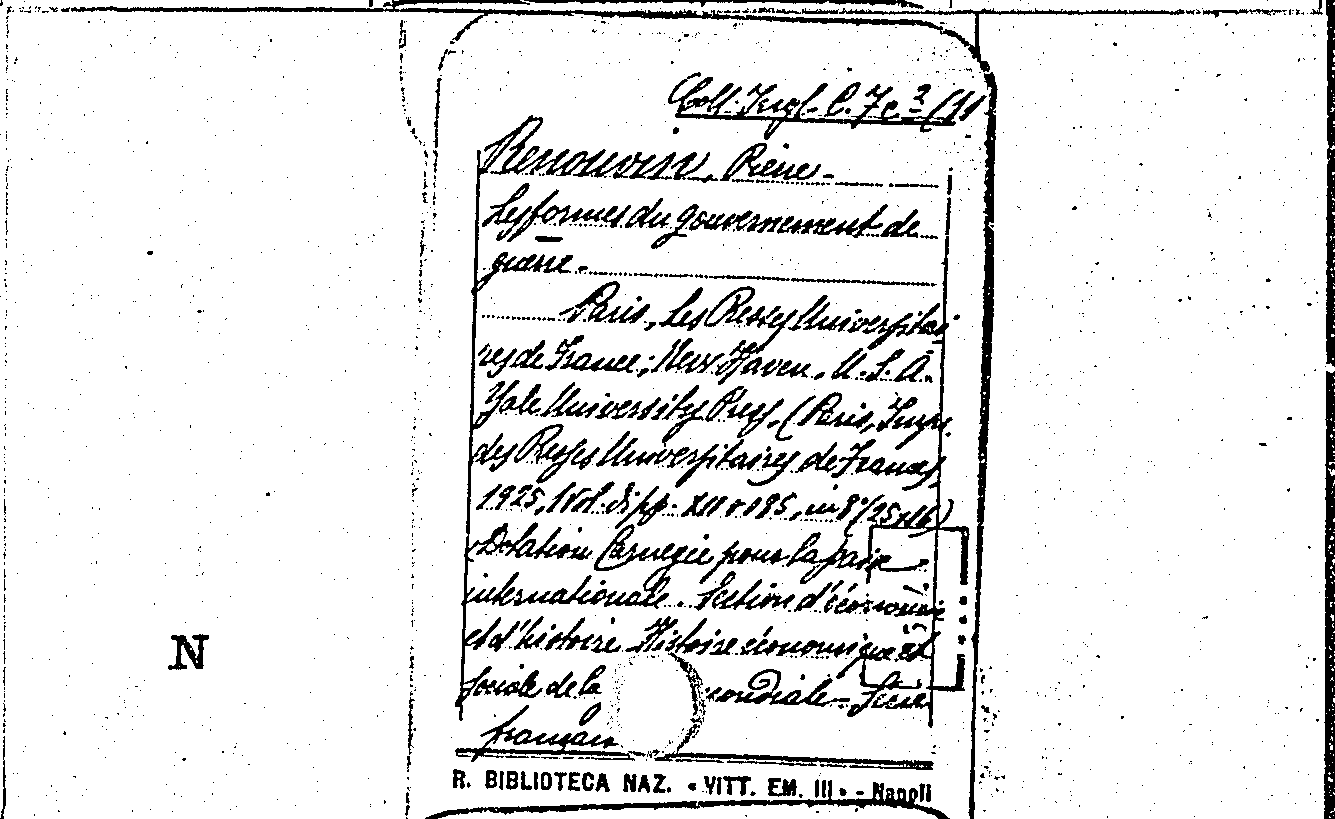 Coll. Ingl. C. 7c²/11
Renouvin, Pierre -
Les formes du gouvernement de
guerre -
Paris, Les Presses Universitai
res de France; New Haven, U. S. A.
Yale University Press, (Paris, Impr.
des Presses Universitaires de France)
1925, 1 Vol. di pp. XII + 185, in 8° (25x16)
(Dotation Carnegie pour la paix
internationale. Section d'économie
et d'histoire Histoire économique et
Sociale de la mondiale - Série
français
N
R. BIBLIOTECA NAZ. « VITT. EM. III » - Napoli